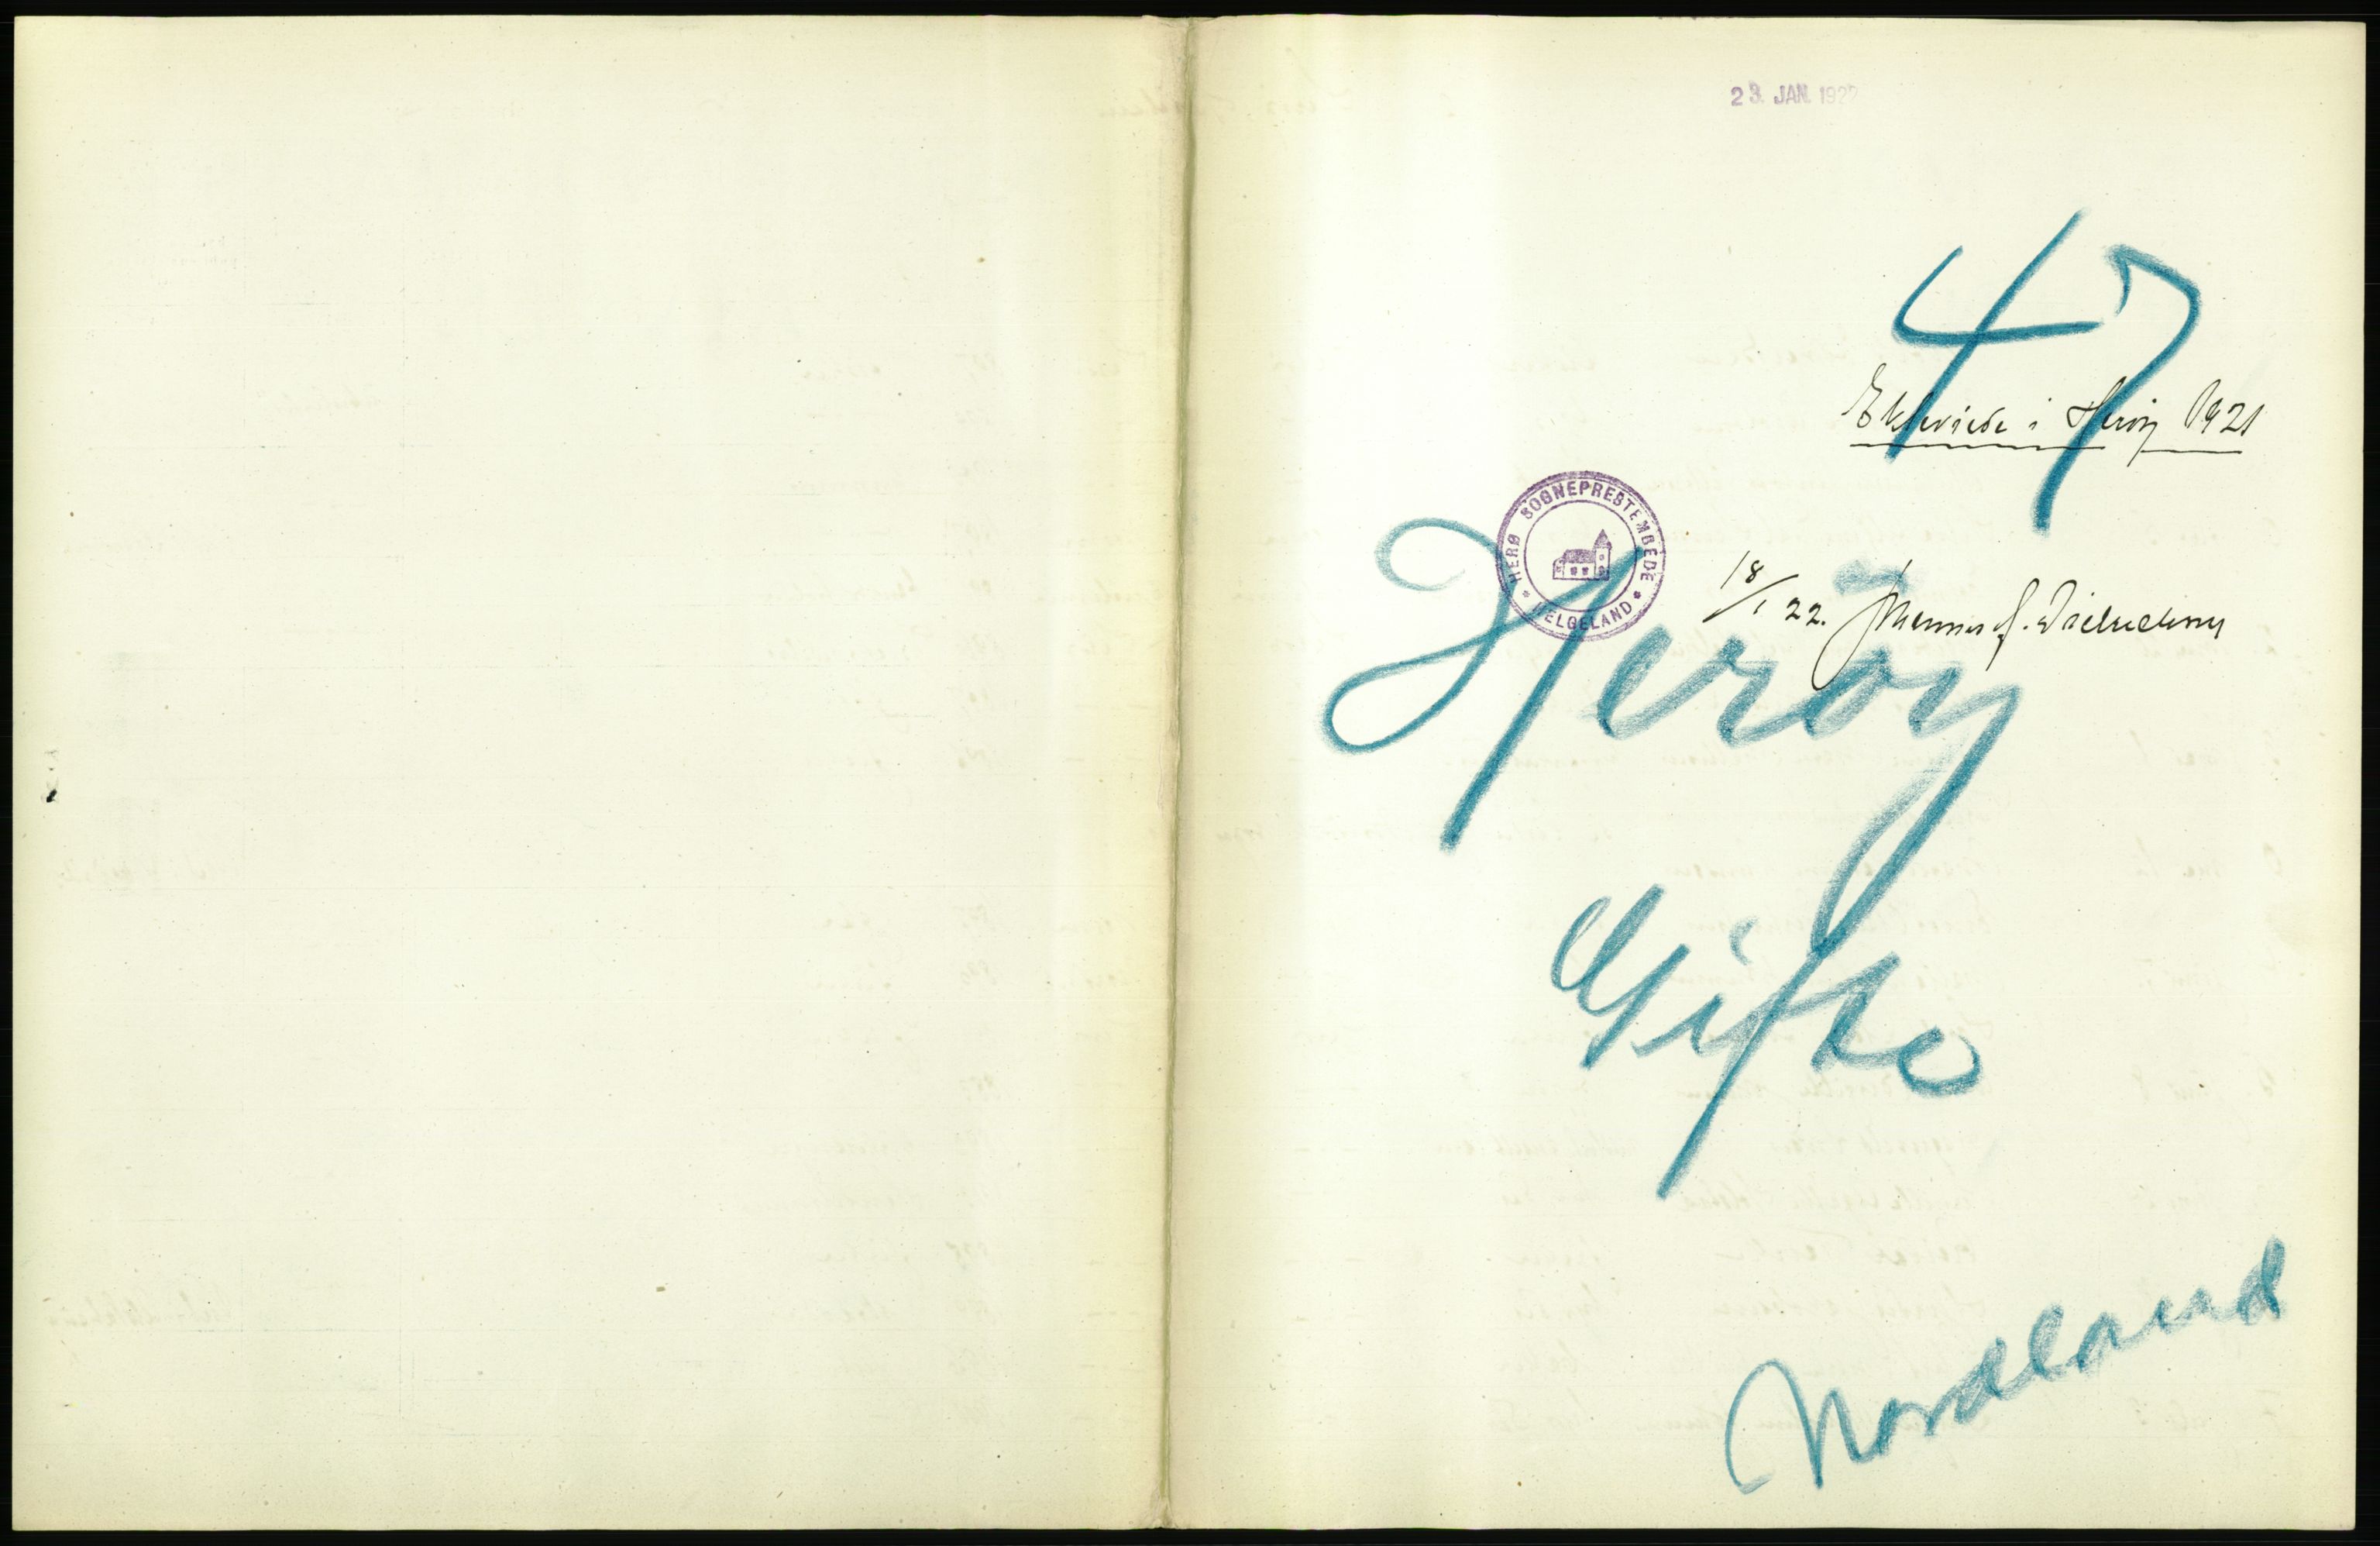 23. JAN. 1922
47
Ekteviede i Herøy 1921
HERØ SOGNEPRESTEMBEDE
* HELGELAND *
18/1 22.
Herøy
Gifte
Nordland